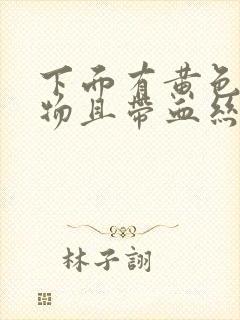 下面有黄色
物且帶血絲
林子詡